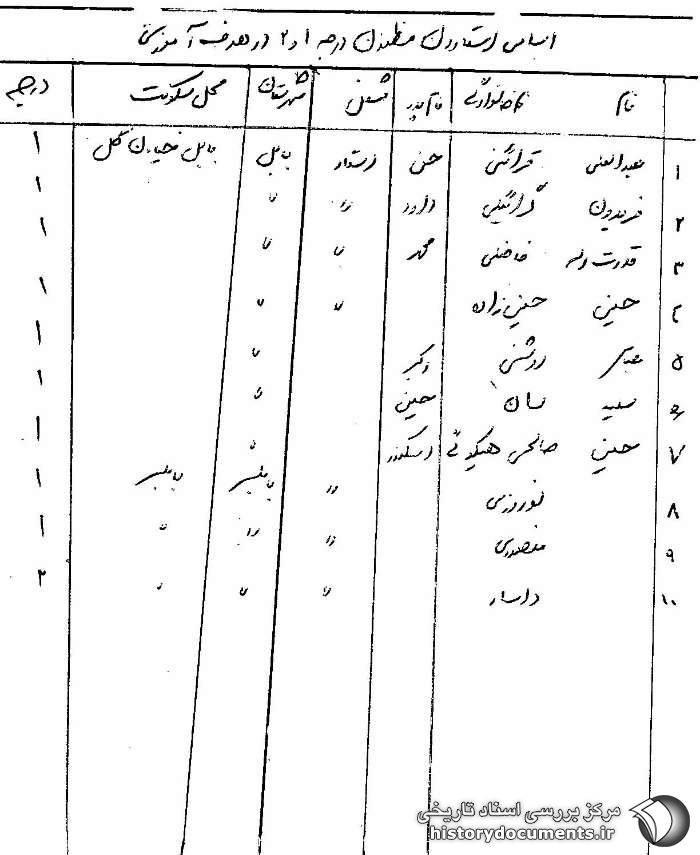 اسامی استادان مظنون درجه ۱ و ۲ در هدف آموزشی
نام نام خانوادگی نام پدر شغل شهرستان محل سکونت درجه
۱ عبدالغنی قرائتی حسن استاد بابل بابل خیابان گل ۱
۲ فریدون گرائیلی داود 〃 〃 ۱
۳ قدرت اله فاضلی محمد 〃 〃 ۱
۴ حسین حسین زاده 〃 〃 ۱
۵ عباس روشنی اکبر 〃 ۱
۶ سعید حسین 〃 ۱
۷ حسین صالحی اسکندر 〃 ۱
۸ نوروزی 〃 بابلسر بابلسر ۱
۹ منصوری 〃 〃 〃 ۱
۱۰ 〃 〃 〃 ۲
مرکز بررسی اسناد تاریخی
historydocuments.ir